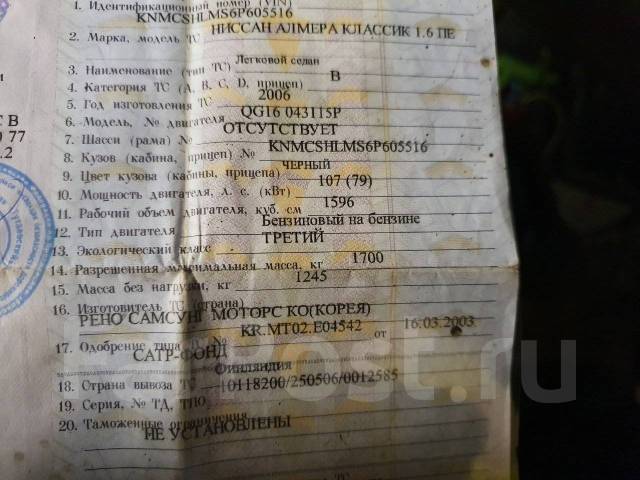 1. Идентификационный номер (VIN)
KNMCSHLMS6P605516
2. Марка, модель ТС НИССАН АЛМЕРА КЛАССИК 1.6 ПЕ
3. Наименование (тип ТС) Легковой седан
4. Категория ТС (A, B, C, D, прицеп) В
5. Год изготовления ТС 2006
6. Модель, № двигателя QG16 043115P
7. Шасси (рама) № ОТСУТСТВУЕТ
8. Кузов (кабина, прицеп) № KNMCSHLMS6P605516
9. Цвет кузова (кабины, прицепа) ЧЕРНЫЙ
10. Мощность двигателя, л. с. (кВт) 107 (79)
11. Рабочий объем двигателя, куб. см 1596
12. Тип двигателя Бензиновый на бензине
13. Экологический класс ТРЕТИЙ
14. Разрешенная максимальная масса, кг 1700
15. Масса без нагрузки, кг 1245
16. Изготовитель ТС (страна)
РЕНО САМСУНГ МОТОРС КО(КОРЕЯ)
17. Одобрение типа ТС № KR.MT02.E04542 от 16.03.2003
САТР-ФОНД
18. Страна вывоза ТС Финляндия
19. Серия, № ТД, ТПО 10118200/250506/0012585
20. Таможенные ограничения
НЕ УСТАНОВЛЕНЫ
С В
0 77
.2
Post.ru